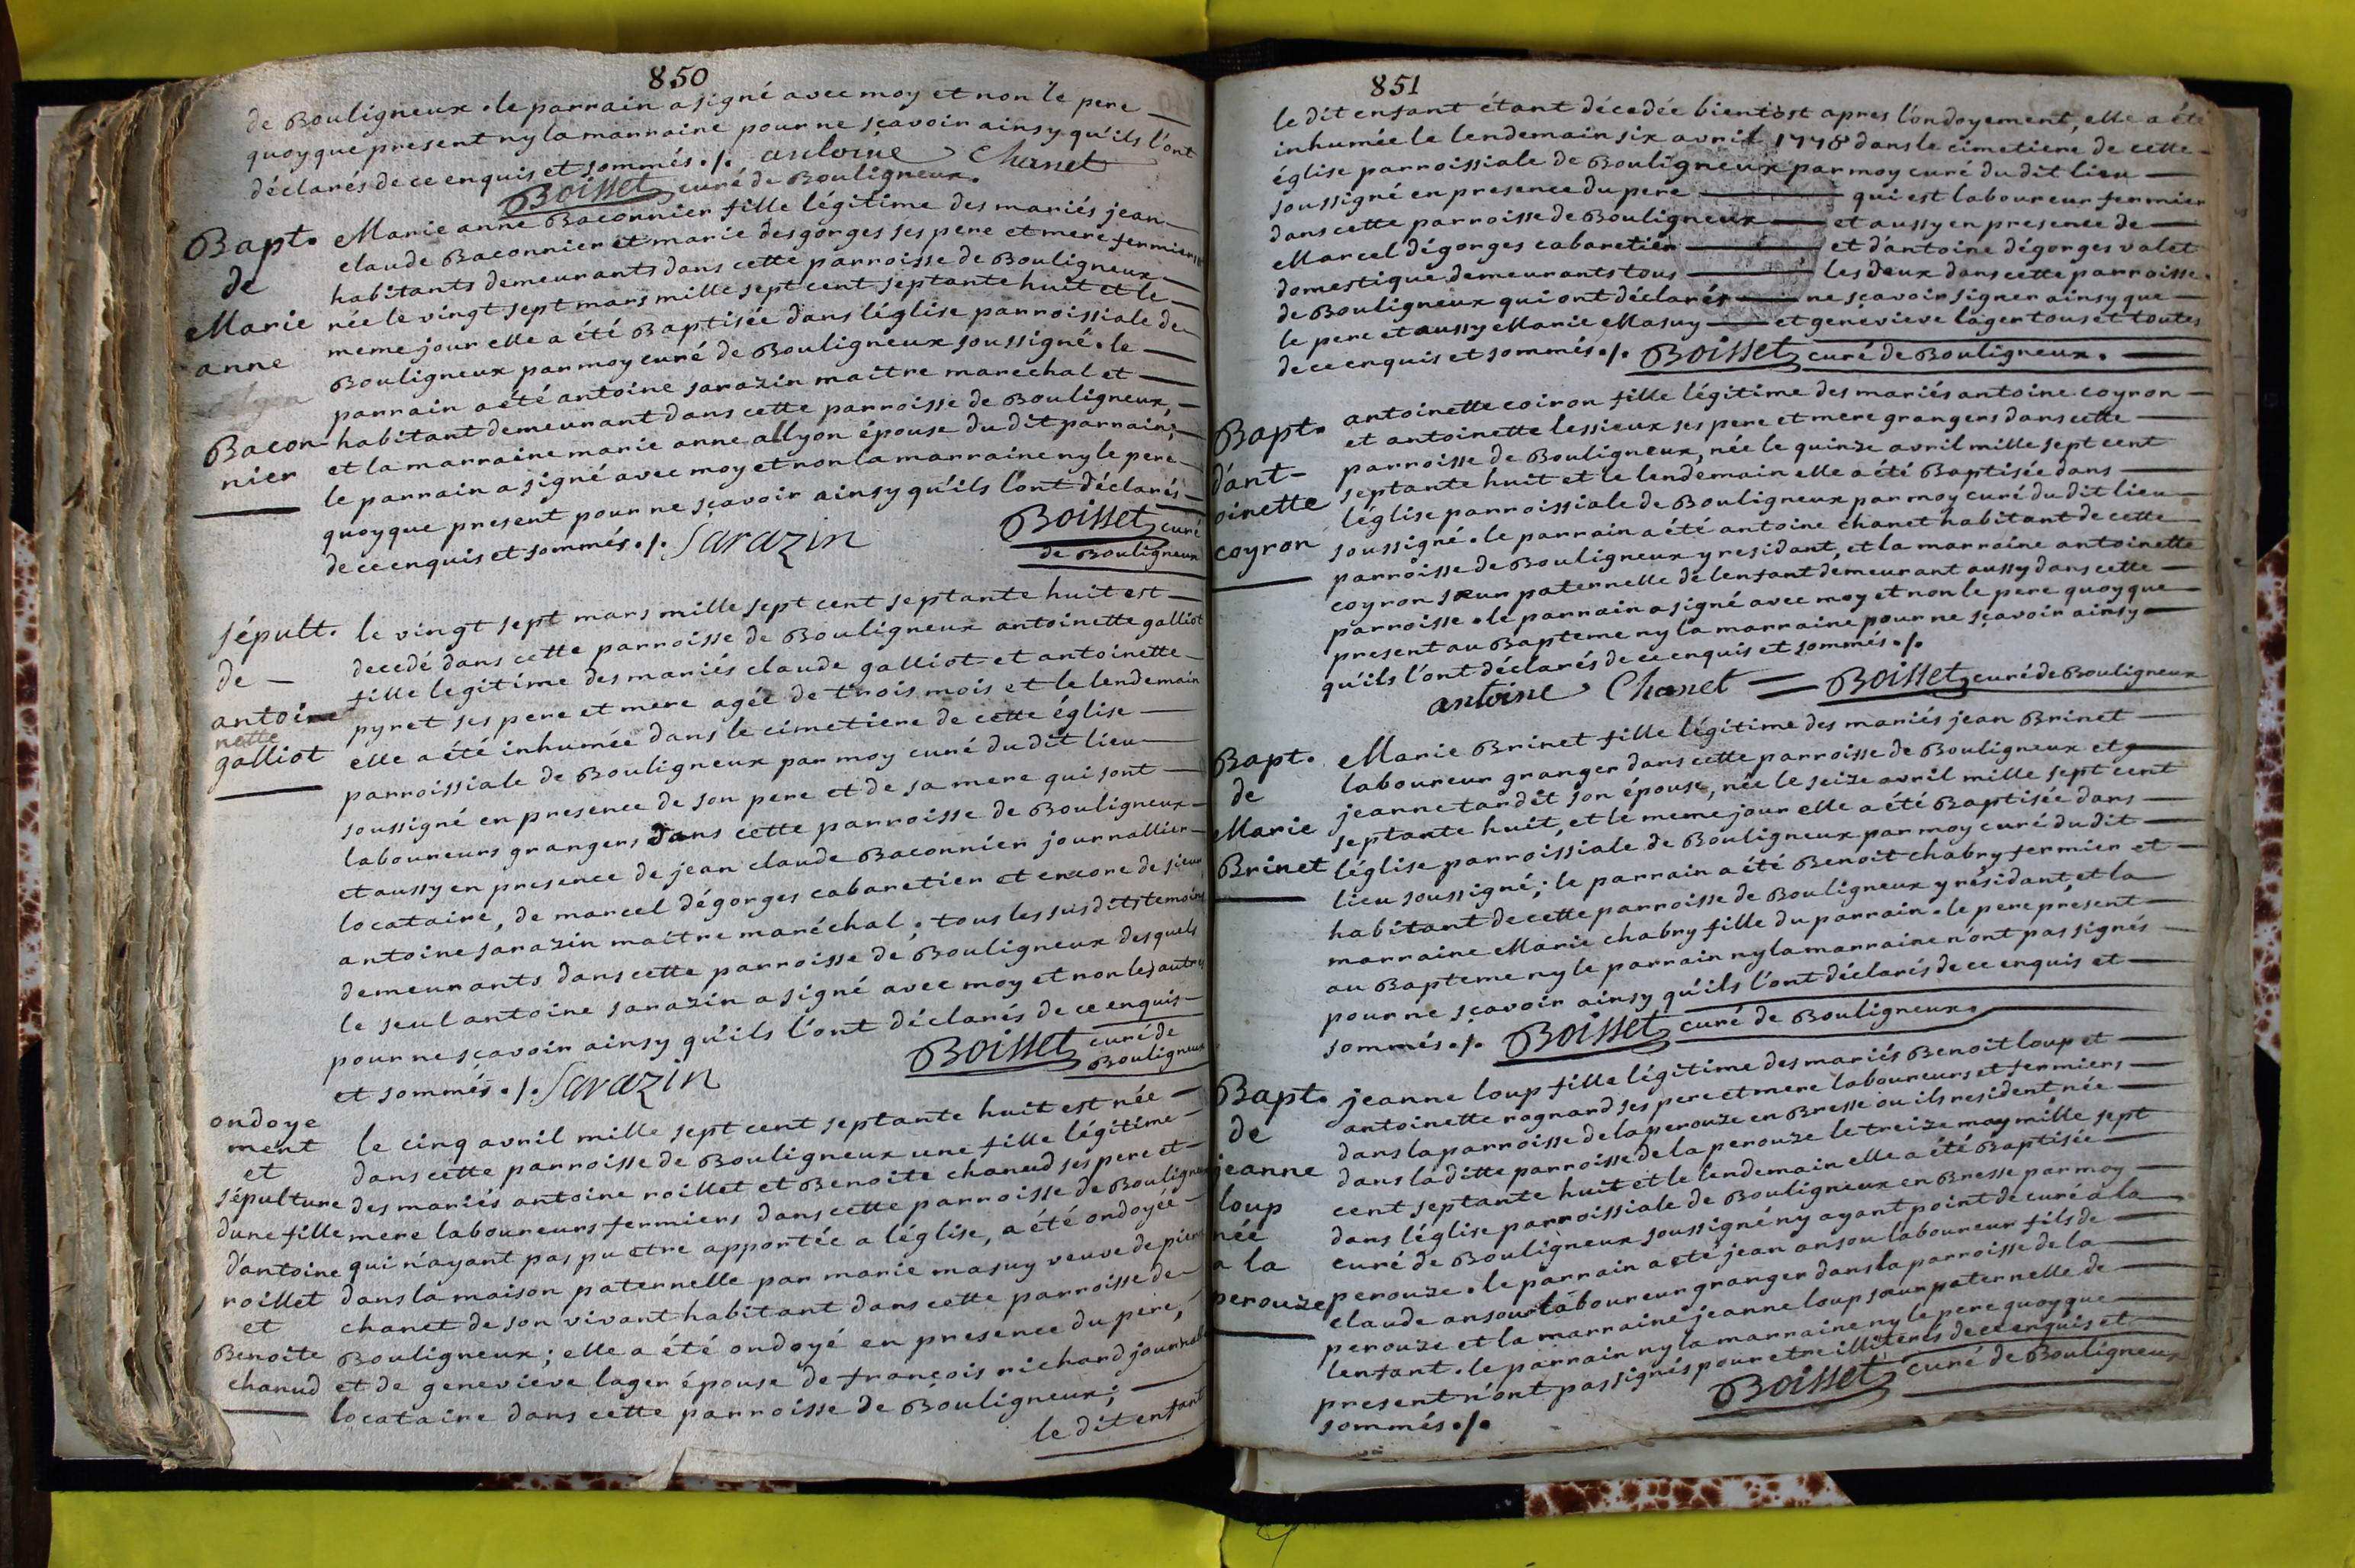 850
de Bouligneux. le parrain a signé avec moy et non le pere
quoyque present ny la marraine pour ne sçavoir ainsy qu'ils l'ont
déclarés de ce enquis et sommés ./. antoine Chanet
Boisset curé de Bouligneux.
Bapt.
de
Marie
anne
Bacon-
nier
Marie anne Baconnier fille légitime des mariés jean
claude Baconnier et marie desgorges ses pere et mere fermiers
habitants demeurants dans cette parroisse de Bouligneux
née le vingt sept mars mille sept cent septante huit et le
meme jour elle a été Baptisée dans l'église parroissiale de
Bouligneux par moy curé de Bouligneux soussigné. le
parrain a été antoine sarazin maitre marechal et
habitant demeurant dans cette parroisse de Bouligneux,
et la marraine marie anne allyon épouse du dit parrain;
le parrain a signé avec moy et non la marraine ny le pere
quoyque present pour ne sçavoir ainsy qu'ils l'ont déclarés
de ce enquis et sommés ./. Sarazin Boisset curé
de Bouligneux
sépult.
de
antoine
nette
galliot
le vingt sept mars mille sept cent septante huit est
decedé dans cette parroisse de Bouligneux antoinette galliot
fille legitime des mariés claude galliot et antoinette
pyret ses pere et mere agée de trois mois et le lendemain
elle a été inhumée dans le cimetiere de cette église
parroissiale de Bouligneux par moy curé du dit lieu
soussigné en presence de son pere et de sa mere qui sont
laboureurs grangers dans cette parroisse de Bouligneux
et aussy en presence de jean claude Baconnier journallier
locataire, de marcel dégorges cabaretier et encore de sieur
antoine sarazin maitre maréchal; tous les susdits temoins
demeurants dans cette parroisse de Bouligneux desquels
le seul antoine sarazin a signé avec moy et non les autres
pour ne sçavoir ainsy qu'ils l'ont déclarés de ce enquis
et sommés ./. Sarazin Boisset curé de
Bouligneux
ondoye
ment
et
sépulture
d'une fille
d'antoine
roillet
et
Benoite
chanud
le cinq avril mille sept cent septante huit est née
dans cette parroisse de Bouligneux une fille légitime
des mariés antoine roillet et Benoite chanud ses pere et
mere laboureurs fermiers dans cette parroisse de Bouligneux
qui n'ayant pas pu etre apportée a l'église, a été ondoyée
dans la maison paternelle par marie masuy veuve de pierre
chanet de son vivant habitant dans cette parroisse de
Bouligneux; elle a été ondoyé en presence du pere,
et de genevieve lager épouse de françois richard journalier
locataire dans cette parroisse de Bouligneux;
le dit enfant
851
le dit enfant étant décedée bientost apres l'ondoyement, elle a été
inhumée le lendemain six avril 1778 dans le cimetiere de cette
église parroissiale de Bouligneux par moy curé du dit lieu
soussigné en presence du pere qui est laboureur fermier
dans cette parroisse de Bouligneux et aussy en presence de
Marcel dégorges cabaretier et d'antoine dégorges valet
domestique demeurants tous les deux dans cette parroisse
de Bouligneux qui ont déclarés ne sçavoir signer ainsy que
le pere et aussy Marie Masuy et genevieve lager tous et toutes
de ce enquis et sommés ./. Boisset curé de Bouligneux.
Bapt.
d'ant-
oinette
coyron
antoinette coiron fille légitime des mariés antoine coyron
et antoinette lessieux ses pere et mere grangers dans cette
parroisse de Bouligneux, née le quinze avril mille sept cent
septante huit et le lendemain elle a été Baptisée dans
l'église parroissiale de Bouligneux par moy curé du dit lieu
soussigné. le parrain a été antoine chanet habitant de cette
parroisse de Bouligneux y residant, et la marraine antoinette
coyron sœur paternelle de l'enfant demeurant aussy dans cette
parroisse. le parrain a signé avec moy et non le pere quoyque
present au Bapteme ny la marraine pour ne sçavoir ainsy
qu'ils l'ont déclarés de ce enquis et sommés ./.
antoine Chanet Boisset curé de Bouligneux
Bapt.
de
Marie
Brinet
Marie Brinet fille légitime des mariés jean Brinet
laboureur granger dans cette parroisse de Bouligneux et
jeanne tardit son épouse, née le seize avril mille sept cent
septante huit, et le meme jour elle a été Baptisée dans
l'église parroissiale de Bouligneux par moy curé du dit
lieu soussigné; le parrain a été Benoit chabry fermier et
habitant de cette parroisse de Bouligneux y résidant, et la
marraine Marie chabry fille du parrain. le pere present
au Bapteme ny le parrain ny la marraine n'ont pas signés
pour ne sçavoir ainsy qu'ils l'ont déclarés de ce enquis et
sommés ./. Boisset curé de Bouligneux.
Bapt.
de
jeanne
loup
née
a la
perouze
jeanne loup fille légitime des mariés Benoit loup et
antoinette rognard ses pere et mere laboureurs et fermiers
dans la parroisse de la perouze en Bresse ou ils resident née
dans la ditte parroisse de la perouze le treize may mille sept
cent septante huit et le lendemain elle a été Baptisée
dans l'église parroissiale de Bouligneux en Bresse par moy
curé de Bouligneux soussigné ny ayant point de curé a la
perouze. le parrain a été jean ansou laboureur fils de
claude ansou laboureur granger dans la parroisse de la
perouze et la marraine jeanne loup sœur paternelle de
l'enfant. le parrain ny la marraine ny le pere quoyque
present n'ont pas signés pour etre illiterés de ce enquis et
sommés ./. Boisset curé de Bouligneux